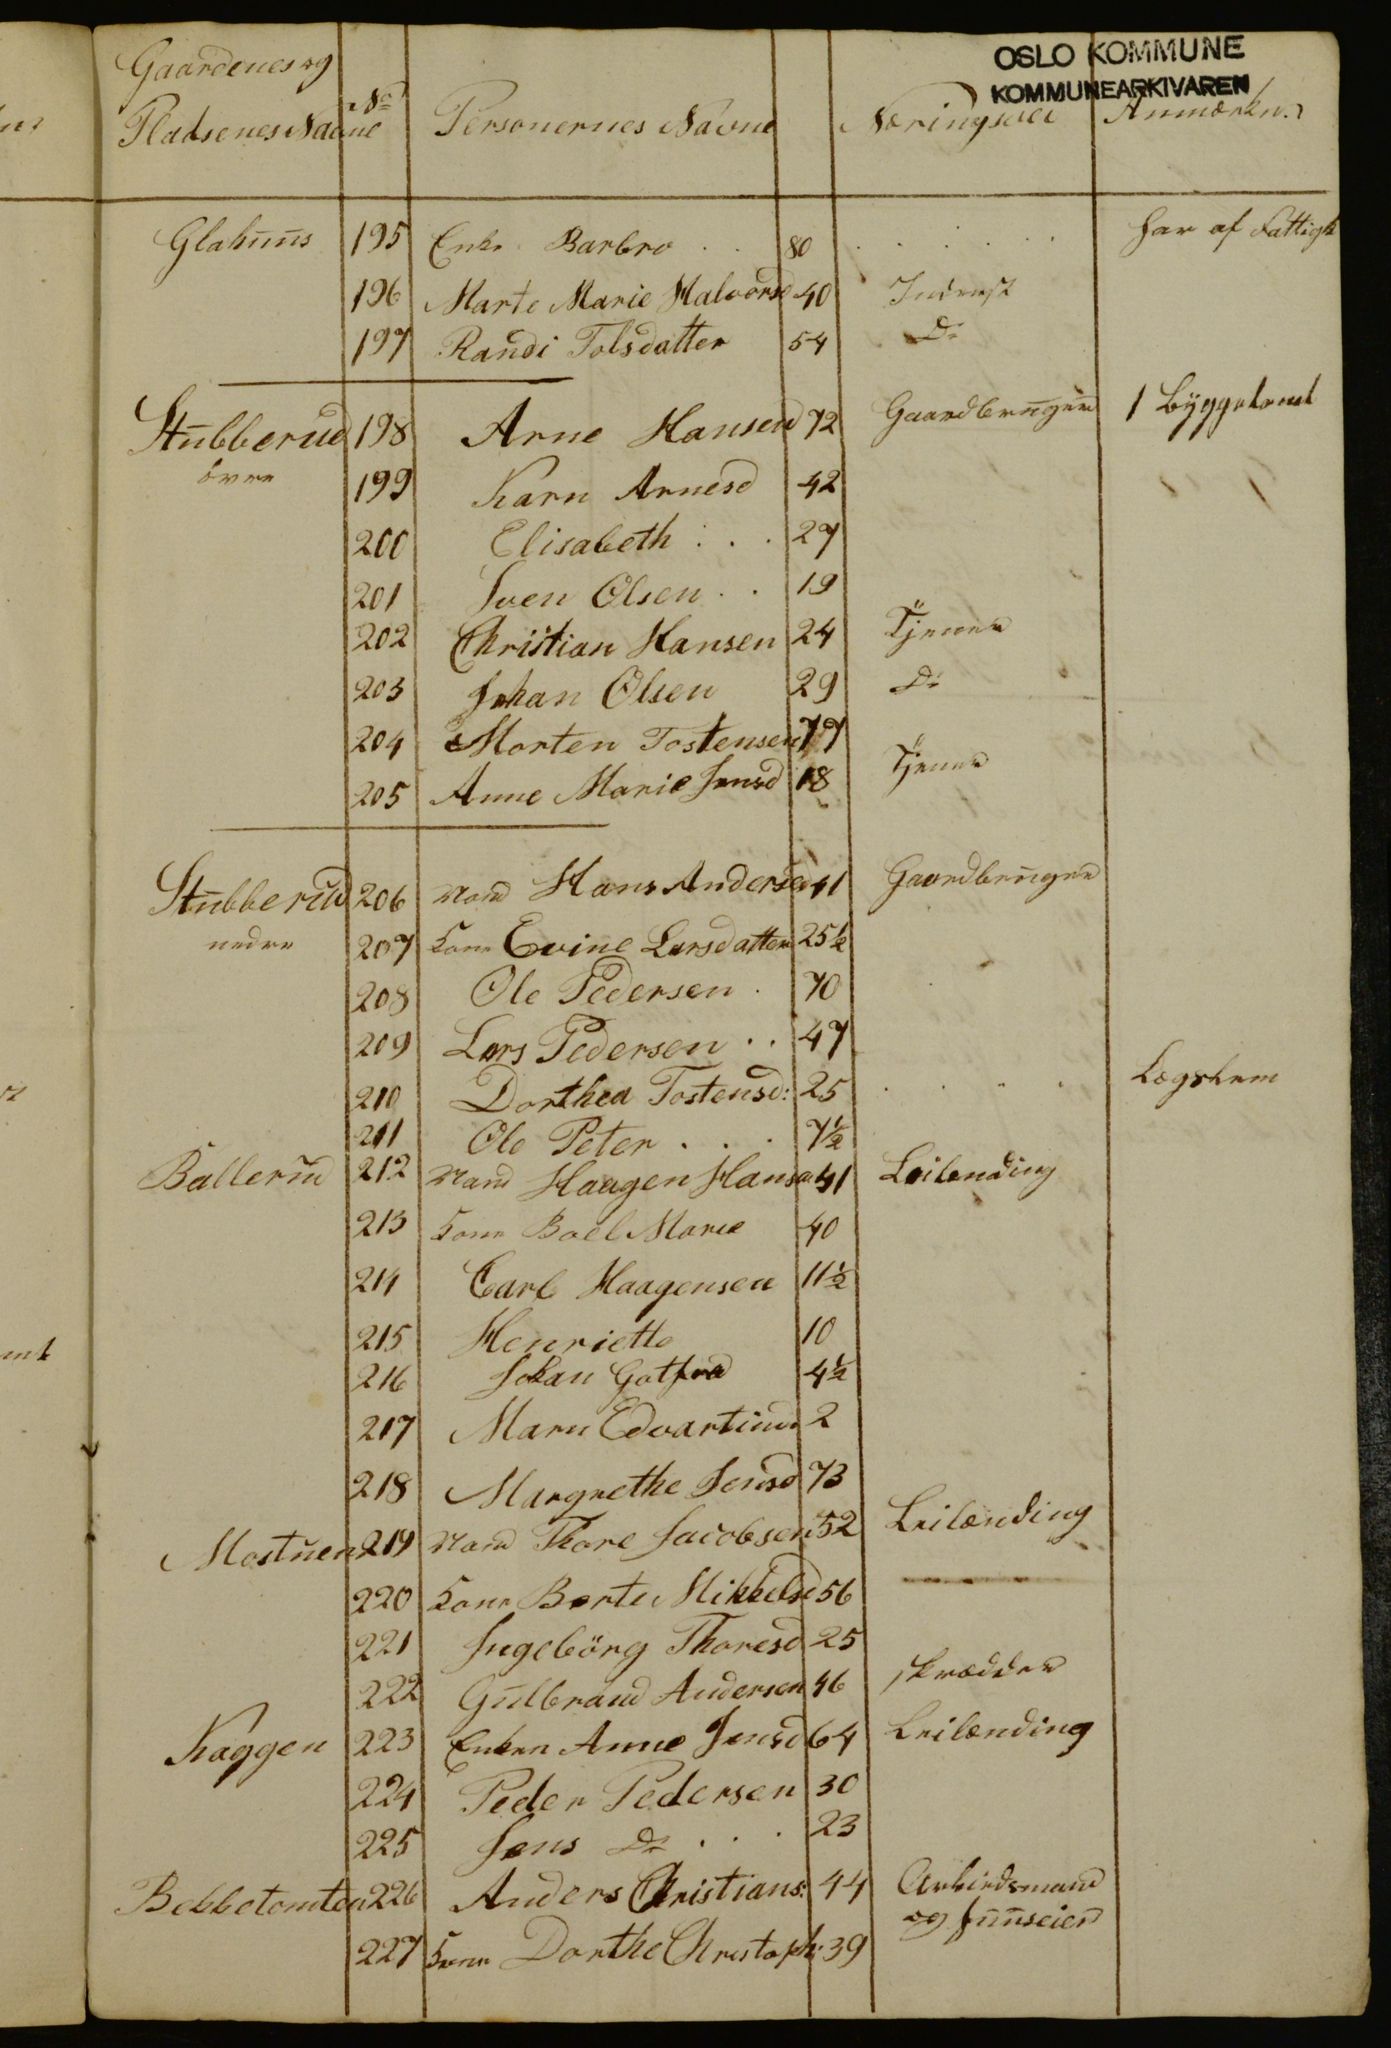 OSLO KOMMUNE
KOMMUNEARKIVAREN
Gaardenes og
Pladsenes Navne No Personernes Navne Næringsvei Anmærkn.
Glahuus 195 Enke Barbro . . 80 . . . . . . . har af Fattigk
196 Marte Marie Halvorsd 40 Inderst
197 Randi Tolsdatter 54 Do
Stubberud 198 Arne Hansen 72 Gaardbruger 1 Byggetomt
øvre 199 Karn Arnesd 42
200 Elisabeth . . . 27
201 Sven Olsen . . 19
202 Christian Hansen 24 Tjener
203 Johan Olsen 29 Do
204 Morten Tostensen 77
205 Anne Marie Jensd 18 Tjener
Stubberud 206 Mand Hans Andersen 41 Gaardbruger
nedre 207 Kone Evine Larsdatter 25½
208 Ole Pedersen . 70
209 Lars Pedersen . . 47
210 Dorthea Tostensd: 25 . . . . Lægslem
211 Ole Peter . . . 7½
Ballerud 212 Mand Haagen Hansen 41 Leilending
213 Kone Boel Marie 40
214 Carl Haagensen 11½
215 Henriette 10
216 Johan Gotfred 4½
217 Maren Edvartine 2
218 Margrethe Jensd 73
Mostuen 219 Mand Thore Jacobsen 52 Leilænding
220 Kone Berte Mikkelsd 56
221 Ingebörg Thoresd 25
222 Gulbrand Andersen 46 skrædder
Kaggen 223 Enken Anne Jensd 64 Leilænding
224 Peder Pedersen 30
225 Jens Do . . . 23
Bekketomten 226 Anders Christians: 44 Arbeidsmand
og huuseier
227 Kone Dorthe Christoph: 39